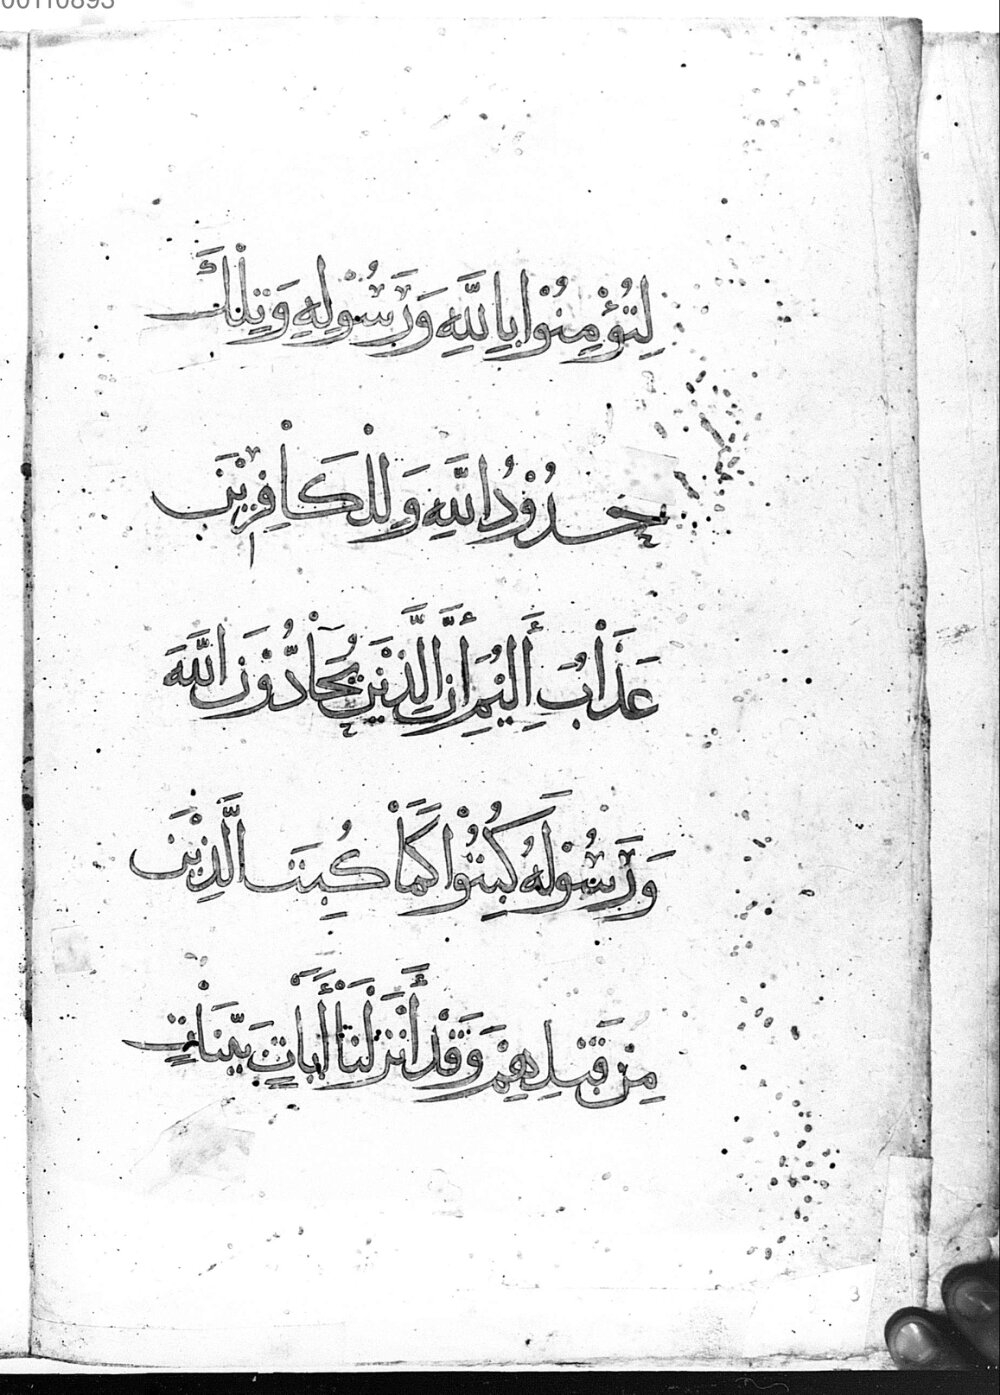 00110893
لِتُؤْمِنُوْا بِاللَّهِ وَرَسُوْلِهِ وَتِلْكَ
حُدُوْدُ اللَّهِ وَلِلْكَافِرِيْنَ
عَذَابٌ أَلِيْمٌ إِنَّ الَّذِيْنَ يُحَآدُّوْنَ اللَّهَ
وَرَسُوْلَهُ كُبِتُوْا كَمَا كُبِتَ الَّذِيْنَ
مِنْ قَبْلِهِمْ وَقَدْ أَنْزَلْنَا أَيَاتٍ بَيِّنَاتٍ